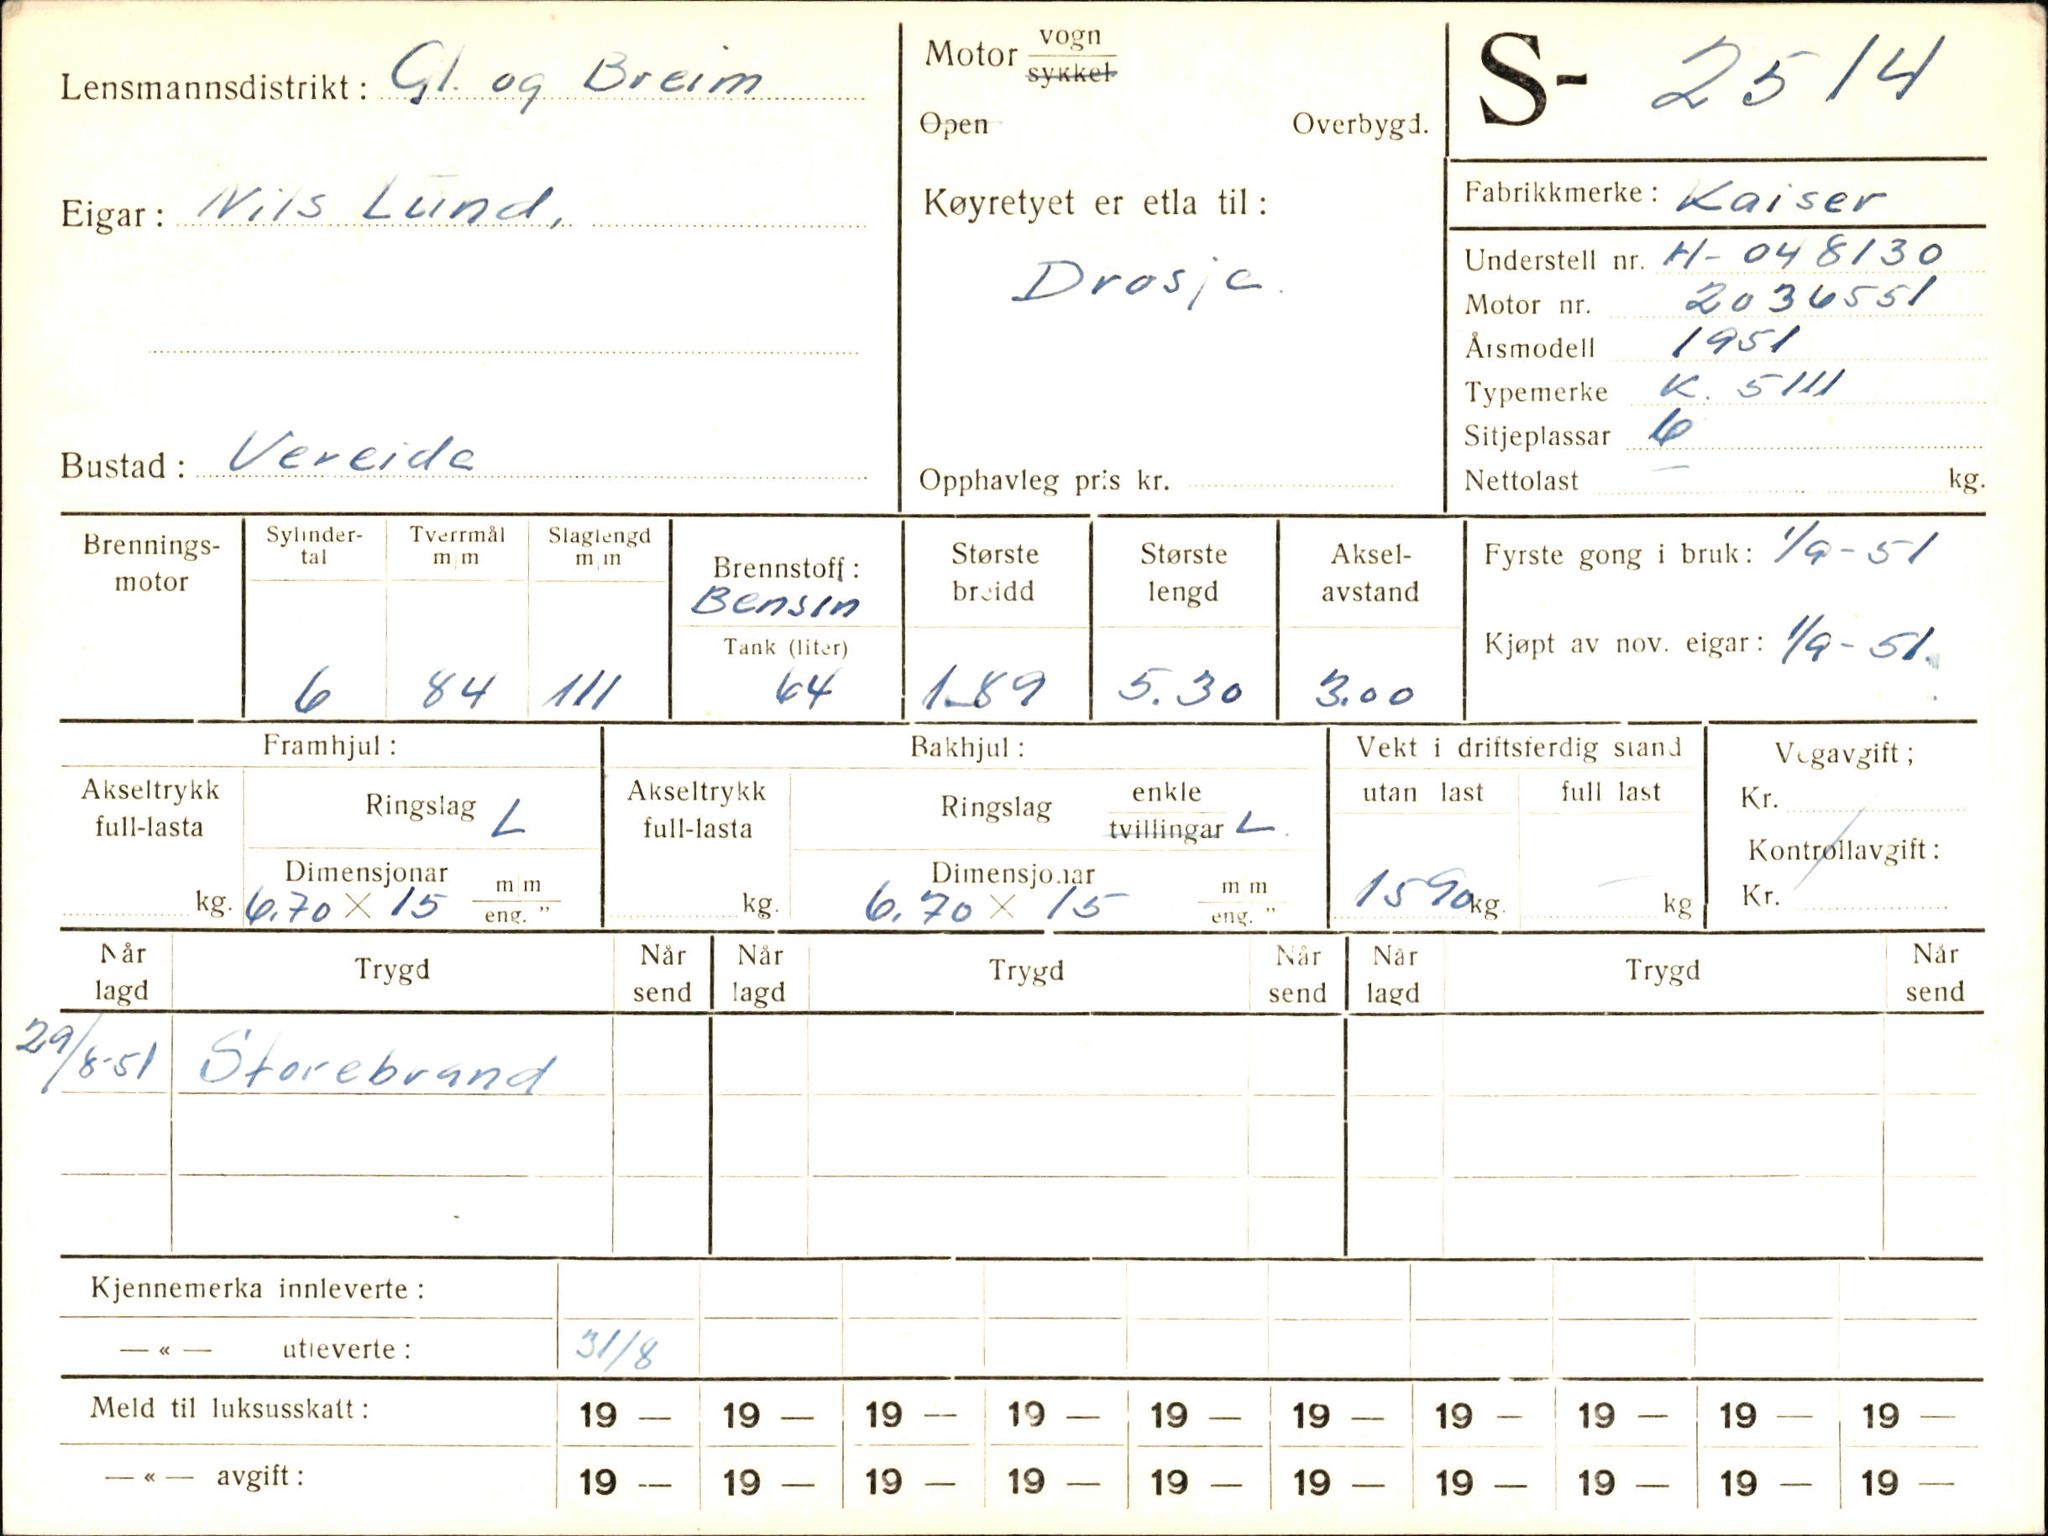 Lensmannsdistrikt: Gl. og Breim
Eigar: Nils Lund,
Bustad: Vereide
Motor vogn
sykkel
Open Overbygd.
Køyretyet er etla til:
Drosje.
Opphavleg pris kr.
S- 2514
Fabrikkmerke: Kaiser
Understell nr. H-048130
Motor nr. 2036551
Årsmodell 1951
Typemerke K. 5111
Sitjeplassar 6
Nettolast — kg.
Brennings-
motor
Sylinder-
tal
6
Tverrmål
m/m
84
Slaglengd
m/m
111
Brennstoff:
Bensin
Tank (liter)
64
Største
breidd
1.89
Største
lengd
5.30
Aksel-
avstand
3.00
Fyrste gong i bruk: 1/9-51
Kjøpt av nov. eigar: 1/9-51.
Framhjul:
Akseltrykk
full-lasta
kg.
Ringslag L
Dimensjonar
6.70 × 15 m/m
eng. "
Bakhjul:
Akseltrykk
full-lasta
kg.
Ringslag enkle
tvillingar L.
Dimensjonar
6.70 × 15 m/m
eng. "
Vekt i driftsferdig stand
utan last
1590 kg.
full last
— kg
Vegavgift;
Kr.
Kontrollavgift:
Kr.
Når
lagd Trygd Når
send Når
lagd Trygd Når
send Når
lagd Trygd Når
send
29/8-51 Storebrand
Kjennemerka innleverte:
— « — utleverte: 31/8
Meld til luksusskatt: 19 — 19 — 19 — 19 — 19 — 19 — 19 — 19 — 19 — 19 —
— « — avgift: 19 — 19 — 19 — 19 — 19 — 19 — 19 — 19 — 19 — 19 —